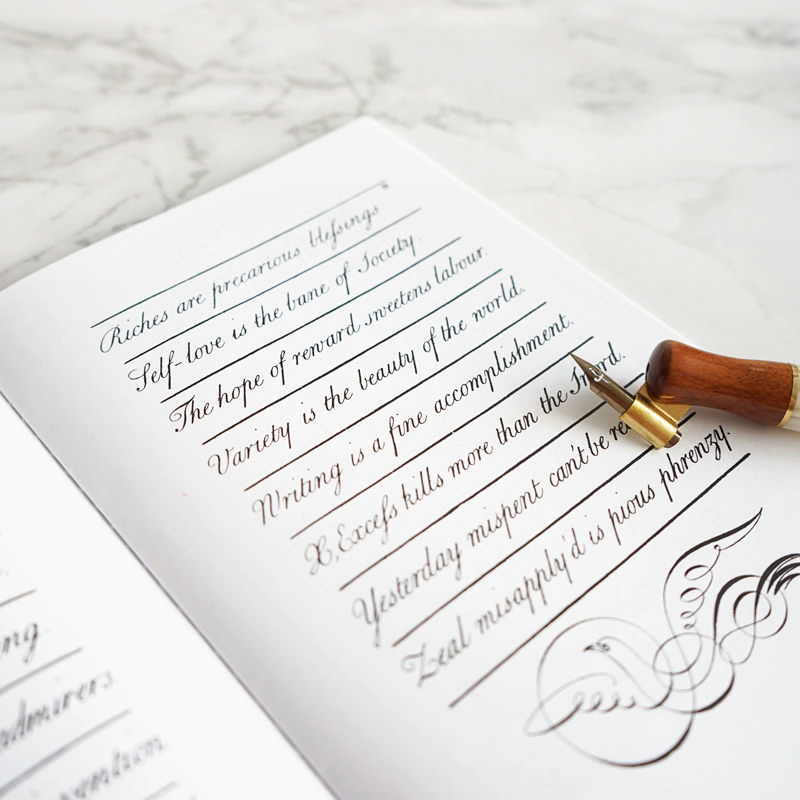 Riches are precarious bleſsings.
Self-love is the bane of Society.
The hope of reward sweetens labour.
Variety is the beauty of the world.
Writing is a fine accomplishment.
X, Exceſs kills more than the Sword.
Yesterday mispent can't be
Zeal misapply'd is pious phrenzy.